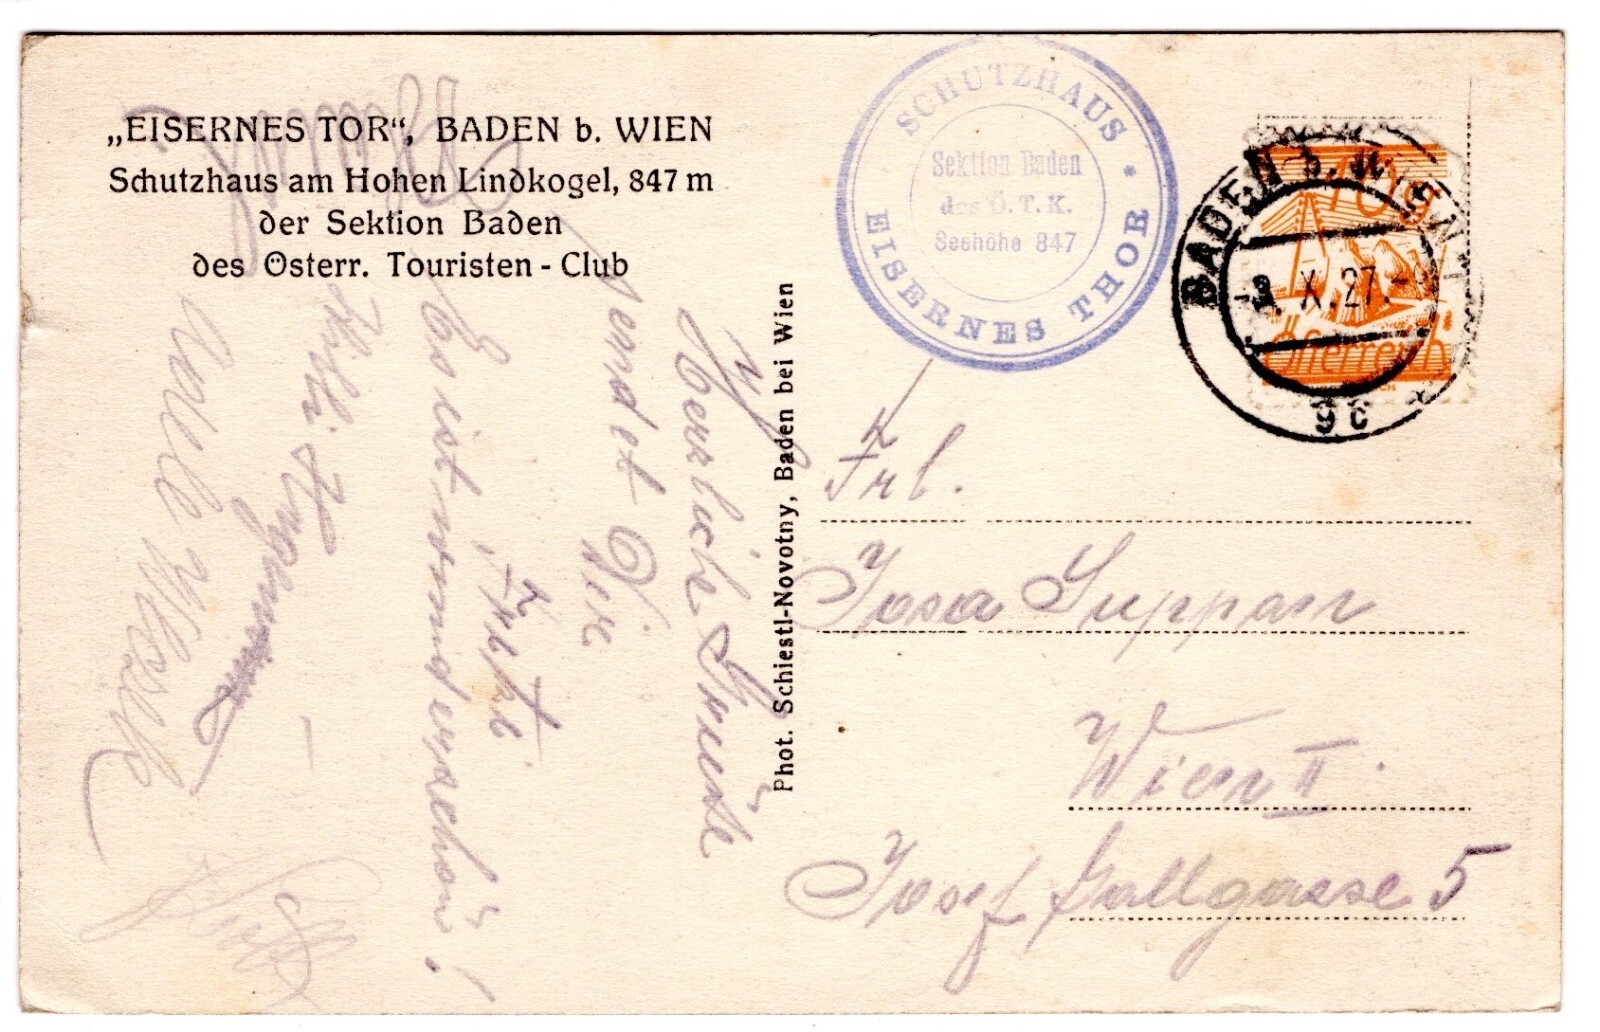 „EISERNES TOR“, BADEN b. WIEN
Schutzhaus am Hohen Lindkogel, 847 m
der Sektion Baden
des Österr. Touristen - Club
SCHUTZHAUS * EISERNES THOR
Sektion Baden
des Ö. T. K.
Seehöhe 847
BADEN b. WIEN
X. 27.
9c
10g
Österreich
Phot. Schiestl-Novotny, Baden bei Wien
Herzliche Grüsse
sendet Dir
Es ist wunderschön!
Frl.
Josa Suppan
Wien II.
Josef Gallgasse 5